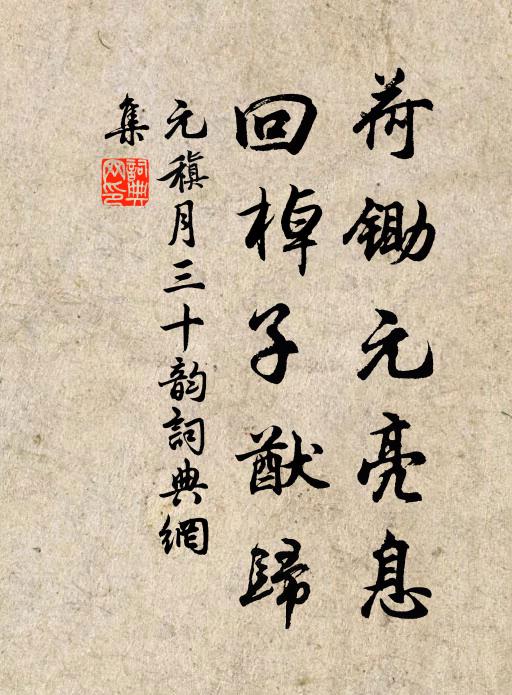 荷鋤元亮息
回棹子猷歸
元稹月三十韵詞典網
集
詞典网印